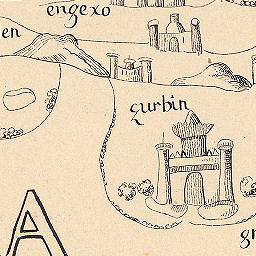 engexo
en
gurbin
A
gr